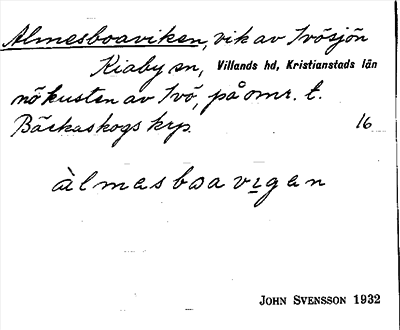 Almesboaviken, vik av Ivösjön
Kiaby sn, Villands hd, Kristianstads län
nö kusten av Ivö, på omr. t.
Bäckaskogs krp. 16
àlmasboavıgan
JOHN SVENSSON 1932